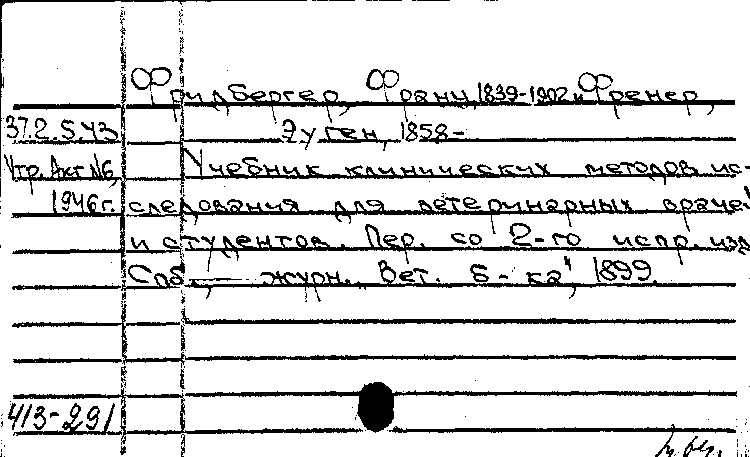 Фридбергер, Франц, 1839-1902 и Френер,
37.2.5.43 Эуген, 1858-
Утр. Акт №6, Учебник клинических методов ис-
1946г. следования для ветеринарных врачей
и студентов. Пер. со 2-го испр. изд.
Спб., — журн. Вет. б-ка", 1899.
413-291